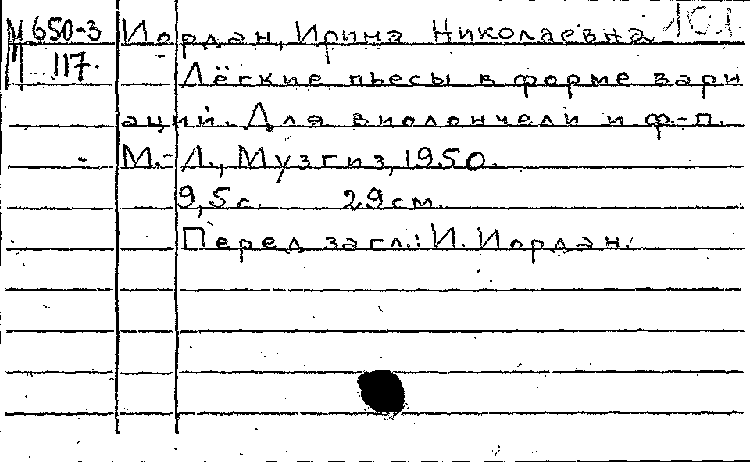 М 650-3 Иордан, Ирина Николаевна 101
117. Лёгкие пьесы в форме вари
аций. Для виолончели и ф-п.
М.-Л., Музгиз, 1950.
9,5с. 29см.
Перед загл.: И. Иордан.